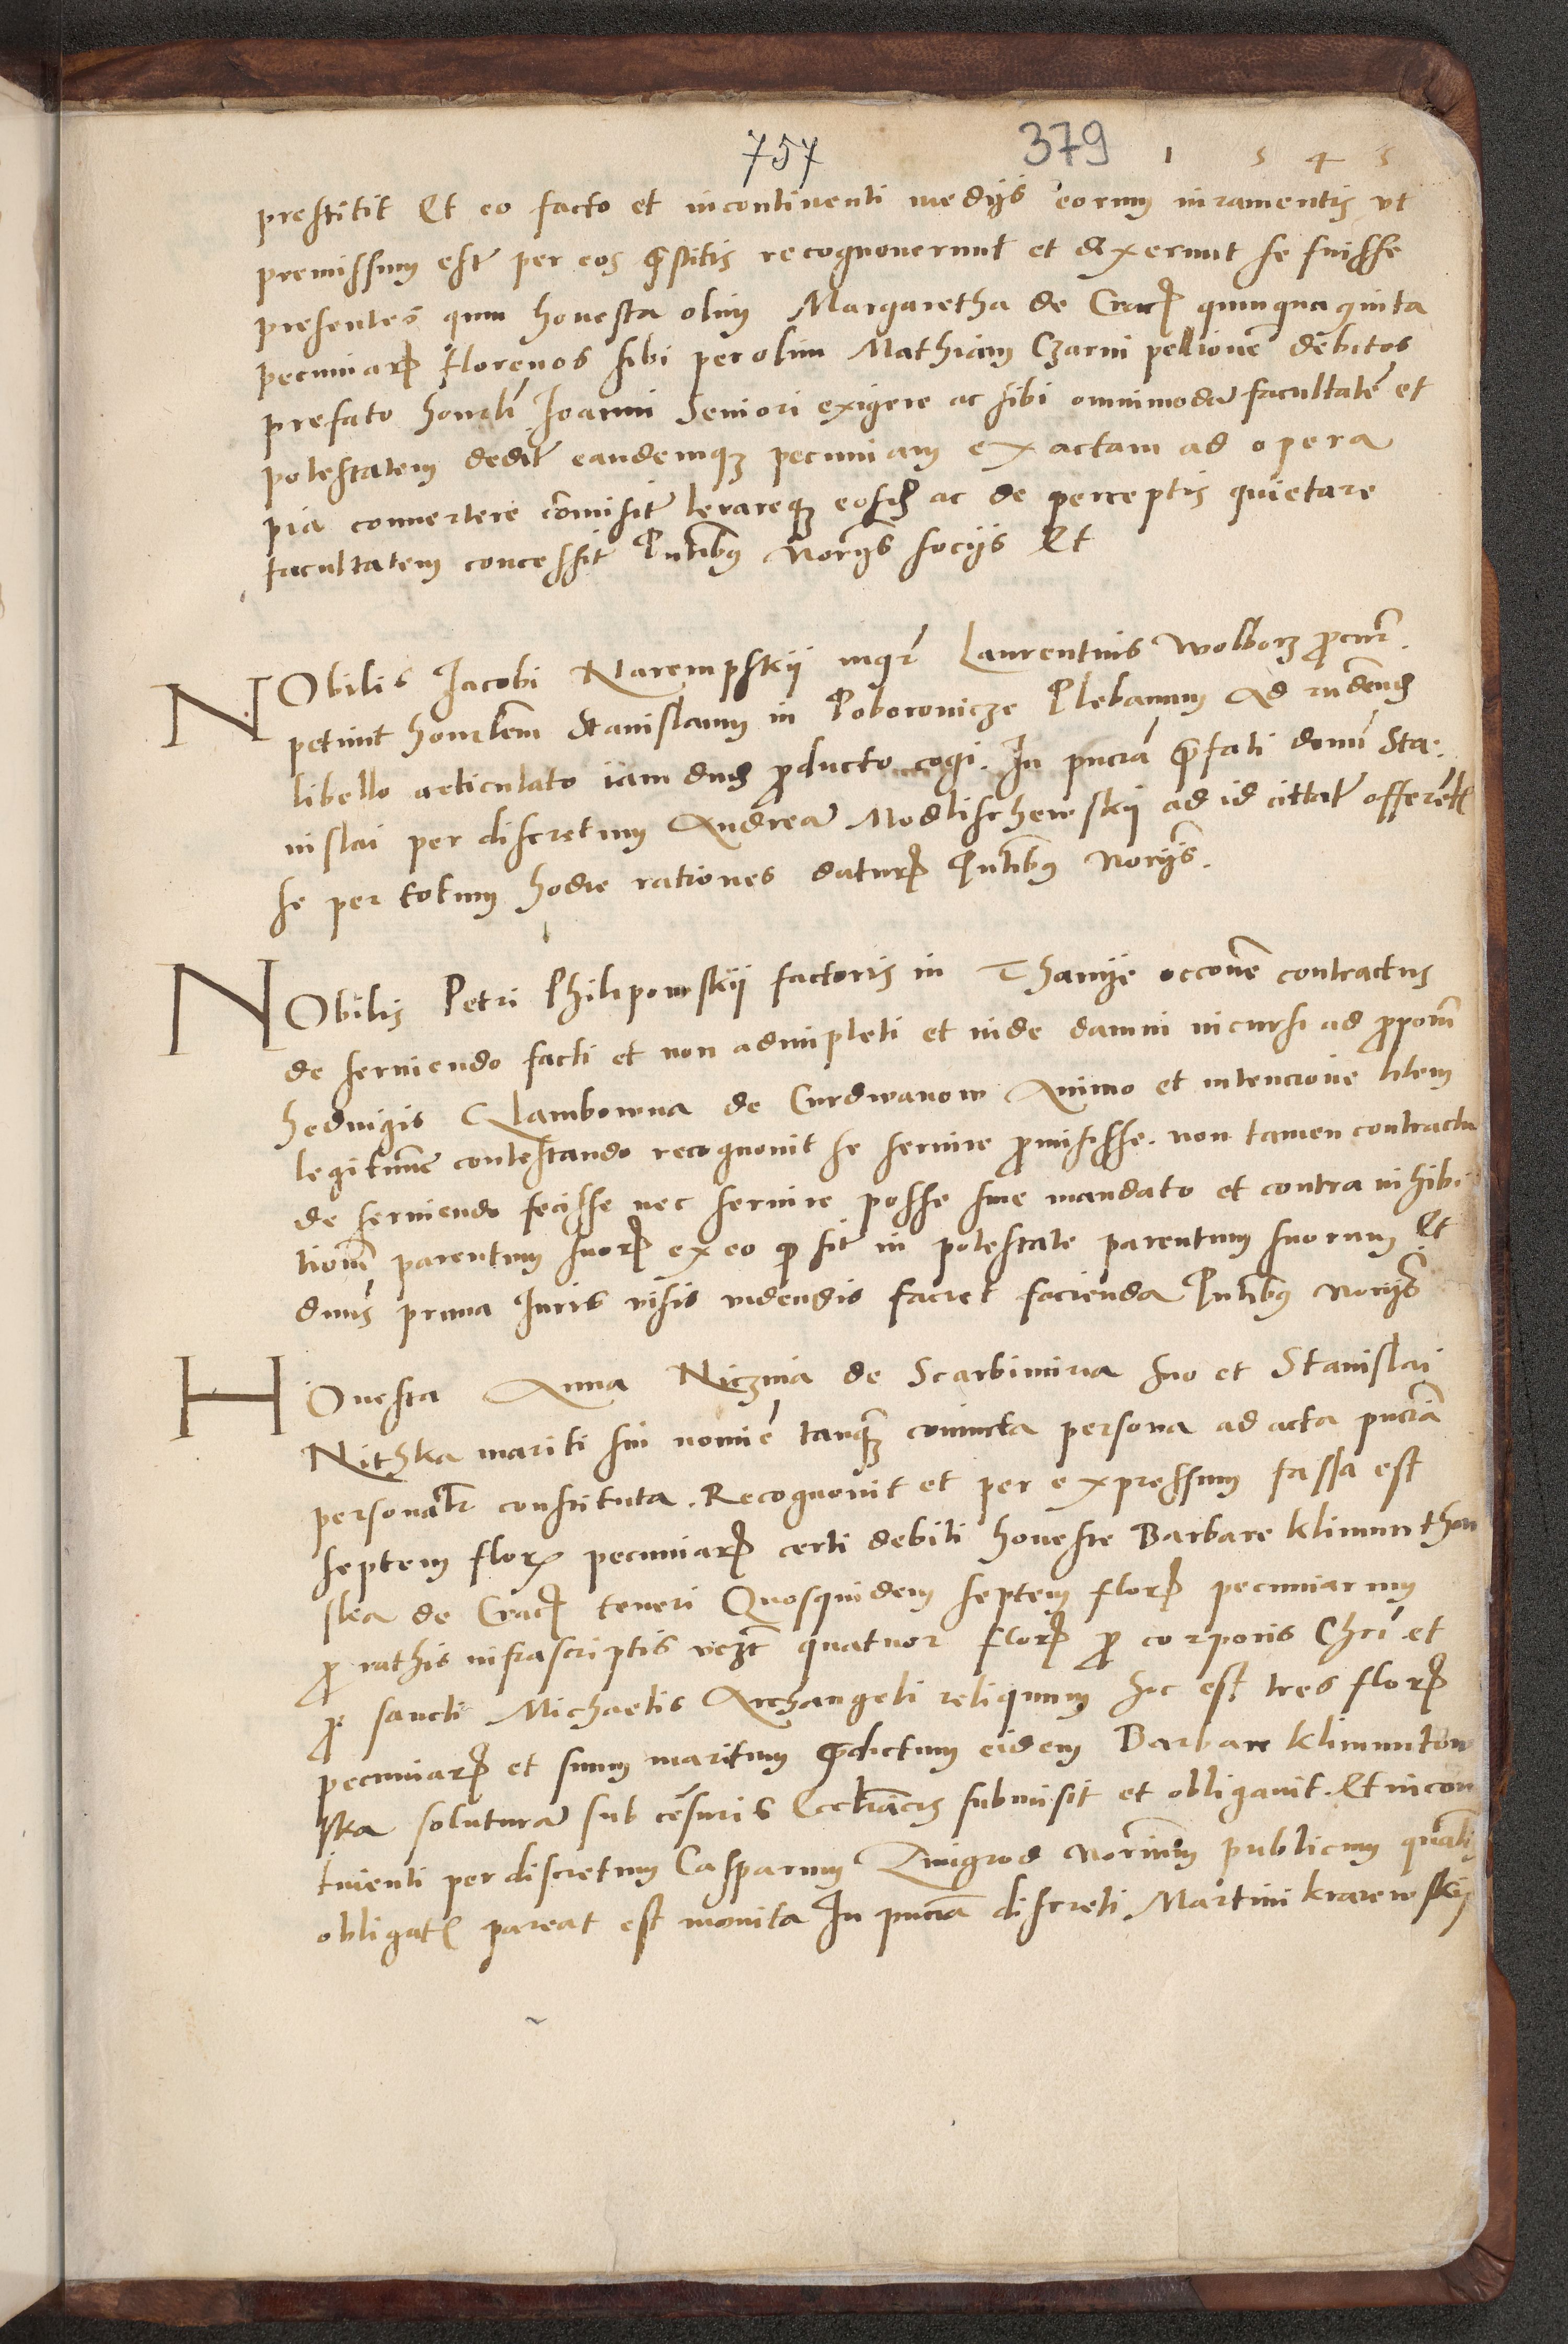 757 379 1 5 4 5
prestitit Et eo facto et incontinenti medijs eorum iuramentis vt
premissum est per eos p̄stitis recognouerunt et dixerunt se fuisse
presentes qum honesta olim Margaretha de Crac quinquaginta
pecuniar florenos sibi per olim Mathiam Czarni pellionē debitos
prefato honrli Joanni Seniori exigere ac sibi omnimodā facultatē et
potestatem dedit eandemq pecuniam exactam ad opera
pia conuertere cōmisit leuareq eosd ac de perceptis quietare
facultatem concessit Pntibus Norijs socijs Et
NObilis Jacobi Narempskij mgr Laurentius Wolborz procur.
petiuit honrlem Stanislaum in Poborowicze Plebanum Ad rndend
libello articulato iam dud producto cogi. In pncia p̄fati domi Sta:
nislai per discretum Andreā Modlischewskij ad id cittat offerent
se per totum hodie rationes datur Pntibus Norijs.
NObilis Petri Philipowskij factoris in Thanije occone contractus
de seruiendo facti et non adimpleti et inde damni incursi ad propom
Hedwigis Glambowna de Curdwanow Animo et intencione litem
legittime contestando recognouit se seruire promisisse. non tamen contractu
de seruiendo fecisse nec seruire posse sine mandato et contra inhibi
tiom parentum suor ex eo q sit in potestate parentum suorum Et
dnus prima Juris visis videndis faciet facienda Pntibus Norijs
HOnesta Anna Niczina de Scarbimiria suo et Stanislai
Nithka mariti sui nomie tanq coniuncta persona ad acta pncia
personalr constituta. Recognouit et per expressum fassa est
septem flor pecuniar certi debiti honeste Barbare Klimunthow
ska de Crac teneri Quosquidem septem flor pecuniarum
pro rathis infrascriptis vczt quatuor flor pro corporis Chri et
pro sancti Michaelis Archangeli reliquum hoc est tres flor
pecuniar et suum maritum p̄dictum eidem Barbare Klimuntow
ska soluturā sub cēsuris Ecclīacis submisit et obligauit. Et incon
tinenti per discretum Casparum Zmigrod Norium publicum qualr
obligat pareat est monita In pncia discreti Martini Krarewskij